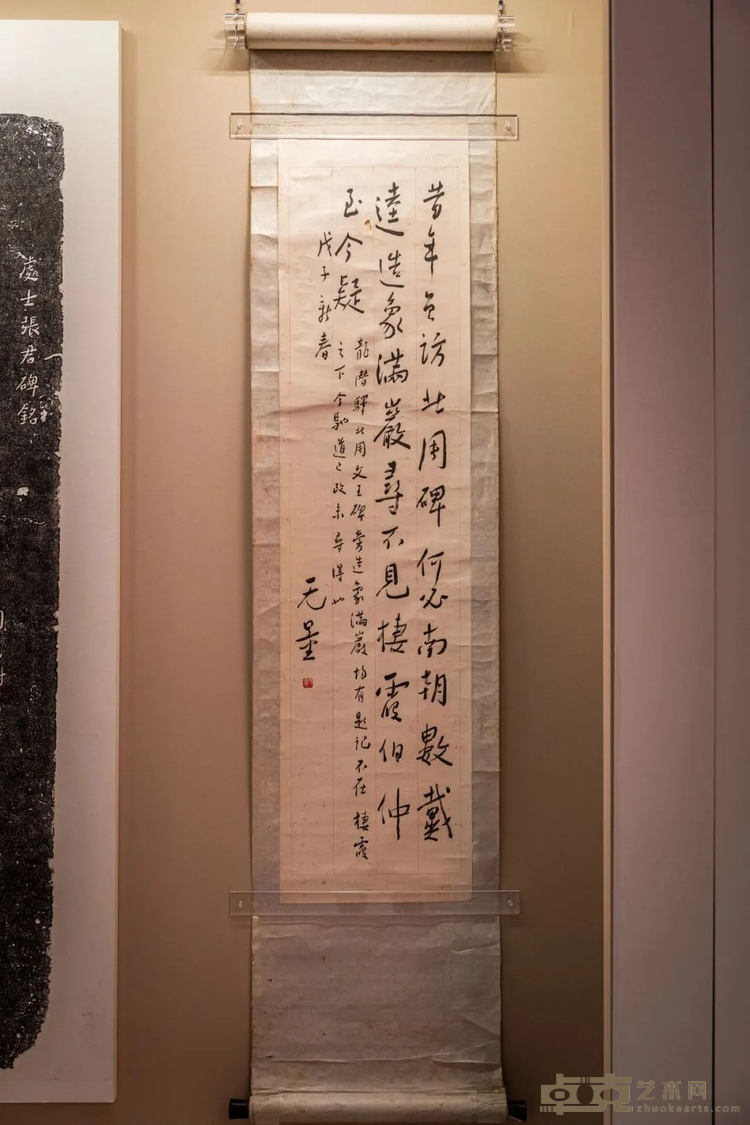 昔年曾訪北周碑何必南朝數戴
逵造象滿巖尋不見棲霞伯仲
至今疑
龍潛驛北周文王碑旁造象滿巖均有題記不在棲霞
之下今馳道已改未尋得也
戊子新春
无量
處士張君碑銘
卓克艺术网
zhuokearts.com